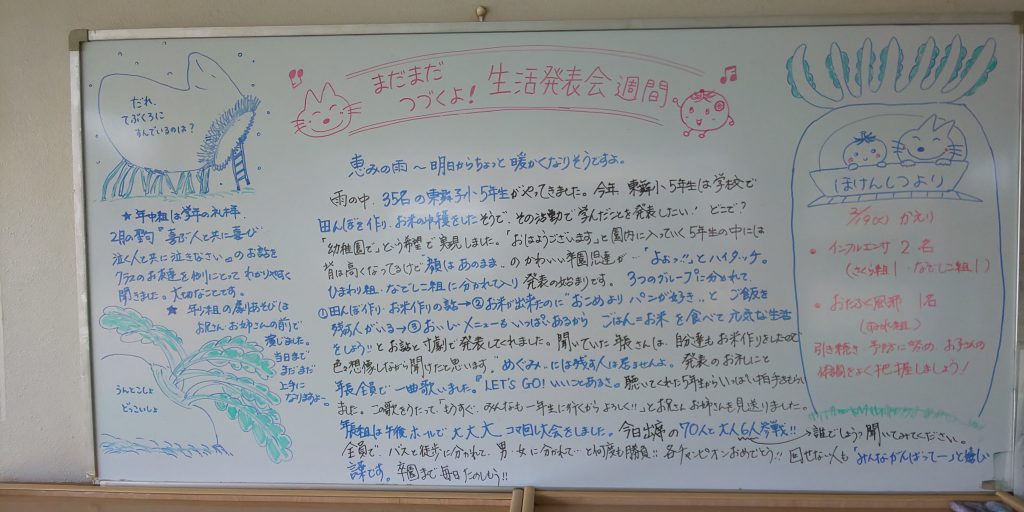 まだまだ
つづくよ!
生活発表会週間
だれ、
てぶくろに
すんでいるのは?
★ 年中組は学年の礼拝.
2月の聖句『喜ぶ人と共に喜び
泣く人と共に泣きなさい。』のお話を
クラスのお友達を例にとって わかりやすく
聞きました。大切なことです。
★ 年少組の劇あそびは
お兄さん お姉さんの前で
演じました。
当日まで
まだまだ
上手に
なりますよ~
うんとこしょ
どっこいしょ
恵みの雨 ~ 明日からちょっと暖かくなりそうですよ。
雨の中、35名の東舞子小5年生がやってきました。今年 東舞小5年生は学校で
田んぼを作り、お米の収穫をしたそうで、その活動で学んだことを発表したい、! どこで?
「幼稚園で」という希望で実現しました。「おはようございます」と園内に入っていく5年生の中には
背は高くなってるけど“顔はあのまま..の かわいい卒園児達が…「よぉっ!!」とハイタッチ。
ひまわり組・なでしこ組に分かれて入り 発表の始まりです。 3つのグループに分かれて、
①田んぼ作り・お米作りの話→②お米が出来たのに“おこめより パンが好き..と ご飯を
残す人がいる→③おいしいメニューもいっぱいあるから ごはん=お米を食べて 元気な生活
をしよう!! とお話と寸劇で発表してくれました。聞いていた年長さんは、自分達もお米作りをしたので
色々想像しながら聞けたと思います。“めぐみ..には残す人は居ませんよ。 発表のお礼にと
年長全員で一曲歌いました。『LET'S GO! いいことあるさ』聴いてくれた5年生からいっぱい拍手をもらい
ました。この歌をうたって、「もうすぐ、みんなも一年生に行くからよろしく!!」とお兄さんお姉さんを見送りました。
年長組は午後ホールで 大大大 コマ回し大会をしました。今日出席の70人と大人6人参戦!! →誰でしょう? 聞いてみてください。
全員で、バスと徒歩に分かれて、男・女に分かれて…と何度も勝負!! 各チャンピオンおめでとう!! 回せない人も「みんながんばってー」と嬉しい
言葉です。卒園まで毎日たのしもう!!
ほけんしつより
2/19(火) かえり
• インフルエンザ 2名
(さくら組1・なでしこ組1)
• おたふく風邪 1名
引き続き 予防に努め、お子さんの
体調をよく把握しましょう!